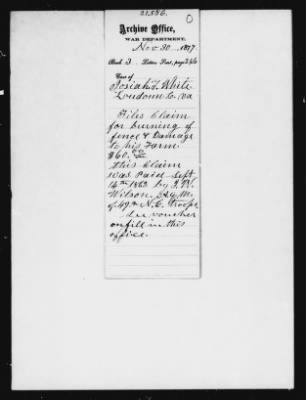 21586.
Archive Office,
WAR DEPARTMENT,
Nov 30, 1877
Book 3. Letters Rec'd, page
Case of
Josiah T. White
Loudoun Co. Va
Files Claim
for burning of
fence & Damage
to his Farm
$60.
This Claim
was Paid Sept
14th 1862 by
Wilson, A.Q.M.
of 49th N.C. Troops
See voucher
on fill in this
office.